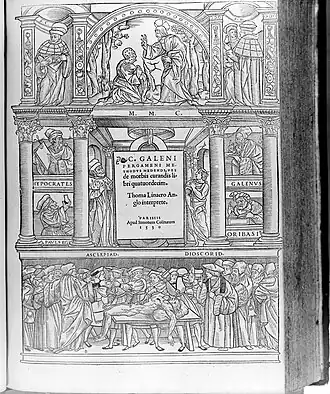 M. M. C.
C. GALENI
PERGAMENI ME-
THODVS MEDENDI, VEL
de morbis curandis li-
bri quatuordecim.
Thoma Linacro An-
glo interprete.
PARISIIS
Apud Simonem Colinæum
1530
HIPOCRATES
GALENVS
PAVLVS
ORIBASI
ASCLEPIAD.
DIOSCORID.